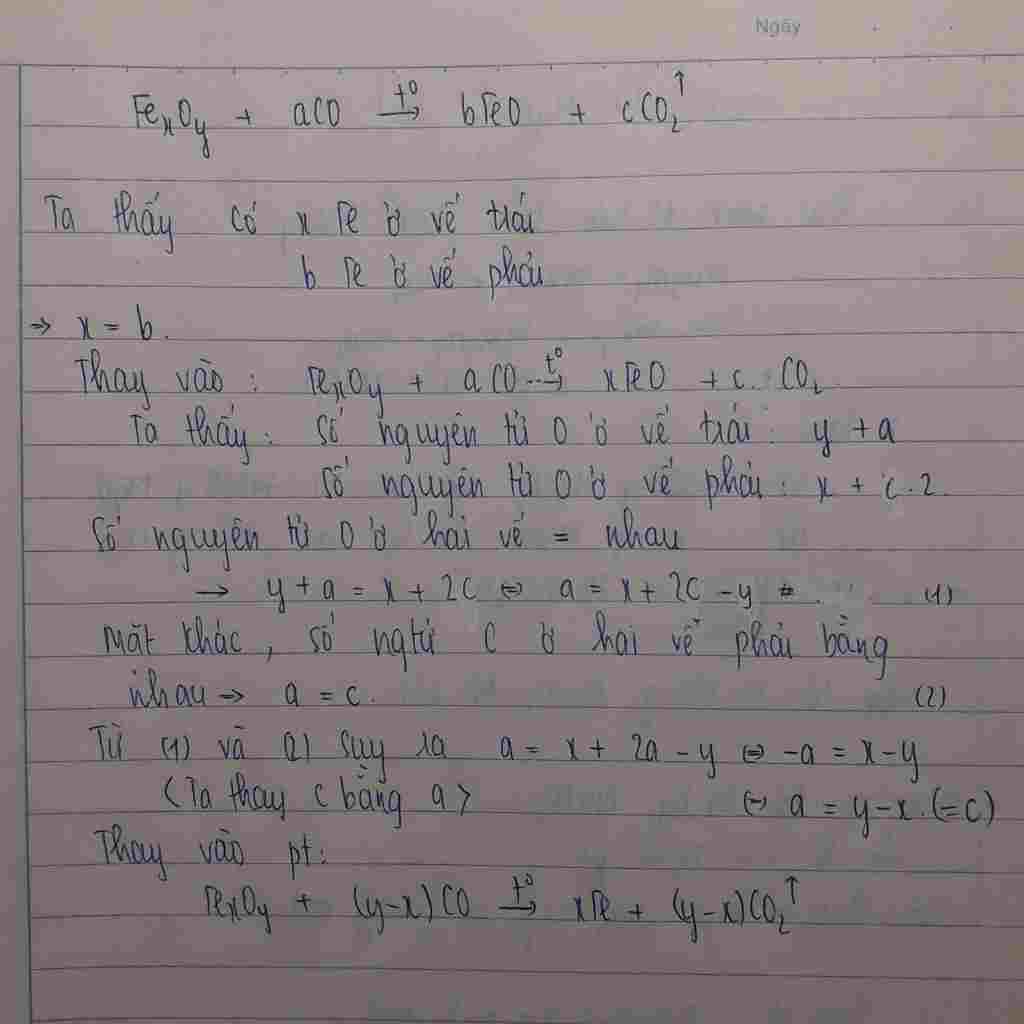 Ngày
FeₓOᵧ + aCO →(t⁰) bFeO + cCO₂↑
Ta thấy có x Fe ở vế trái
b Fe ở vế phải
→ x = b.
Thay vào: FeₓOᵧ + aCO →(t⁰) xFeO + c. CO₂
Ta thấy: Số nguyên tử O ở vế trái: y + a
Số nguyên tử O ở vế phải: x + c.2.
Số nguyên tử O ở hai vế = nhau
→ y + a = x + 2c ⇔ a = x + 2c - y (1)
Mặt khác, số ngtử C ở hai vế phải bằng
nhau → a = c. (2)
Từ (1) và (2) suy ra a = x + 2a - y ⇔ -a = x - y
(Ta thay c bằng a) ⇔ a = y - x. (=c)
Thay vào pt:
FeₓOᵧ + (y-x)CO →(t⁰) xFe + (y-x)CO₂↑